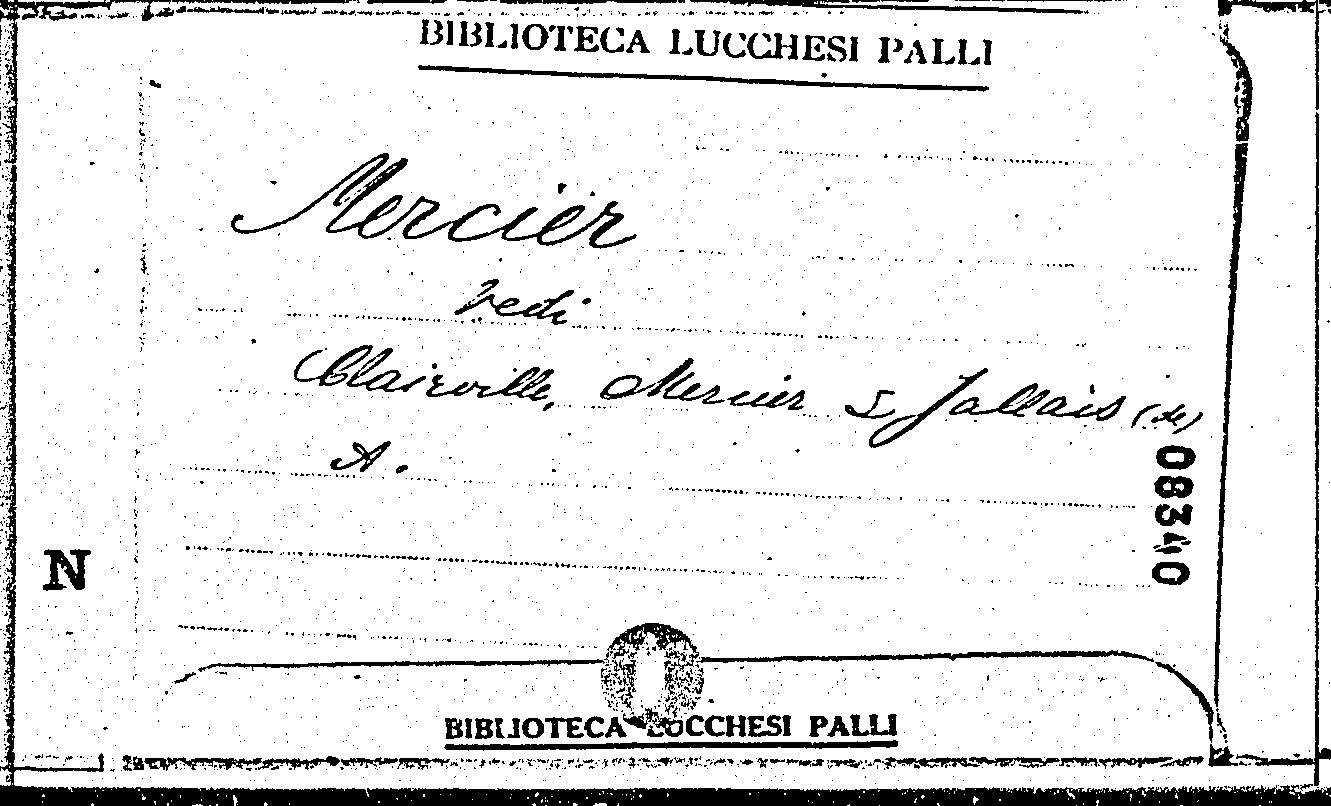 BIBLIOTECA LUCCHESI PALLI
Mercier
vedi
Clairville, Mercier & Jallais (de)
A.
08340
N
BIBLIOTECA LUCCHESI PALLI